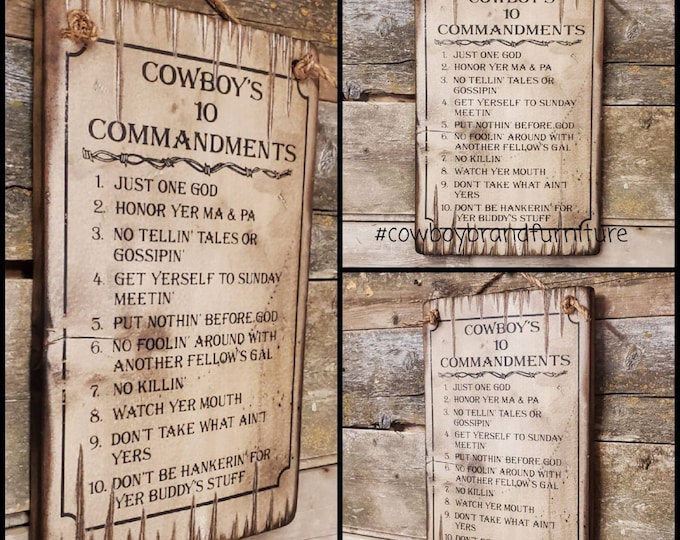 COWBOY'S
10
COMMANDMENTS
1. JUST ONE GOD
2. HONOR YER MA & PA
3. NO TELLIN' TALES OR
GOSSIPIN'
4. GET YERSELF TO SUNDAY
MEETIN'
5. PUT NOTHIN' BEFORE GOD
6. NO FOOLIN' AROUND WITH
ANOTHER FELLOW'S GAL
7. NO KILLIN'
8. WATCH YER MOUTH
9. DON'T TAKE WHAT AIN'T
YERS
10. DON'T BE HANKERIN' FOR
YER BUDDY'S STUFF
COWBOY'S
10
COMMANDMENTS
1. JUST ONE GOD
2. HONOR YER MA & PA
3. NO TELLIN' TALES OR
GOSSIPIN'
4. GET YERSELF TO SUNDAY
MEETIN'
5. PUT NOTHIN' BEFORE GOD
6. NO FOOLIN' AROUND WITH
ANOTHER FELLOW'S GAL
7. NO KILLIN'
8. WATCH YER MOUTH
9. DON'T TAKE WHAT AIN'T
YERS
10. DON'T BE HANKERIN' FOR
YER BUDDY'S STUFF
#cowboybrandfurniture
COWBOY'S
10
COMMANDMENTS
1. JUST ONE GOD
2. HONOR YER MA & PA
3. NO TELLIN' TALES OR
GOSSIPIN'
4. GET YERSELF TO SUNDAY
MEETIN'
5. PUT NOTHIN' BEFORE GOD
6. NO FOOLIN' AROUND WITH
ANOTHER FELLOW'S GAL
7. NO KILLIN'
8. WATCH YER MOUTH
9. DON'T TAKE WHAT AIN'T
YERS